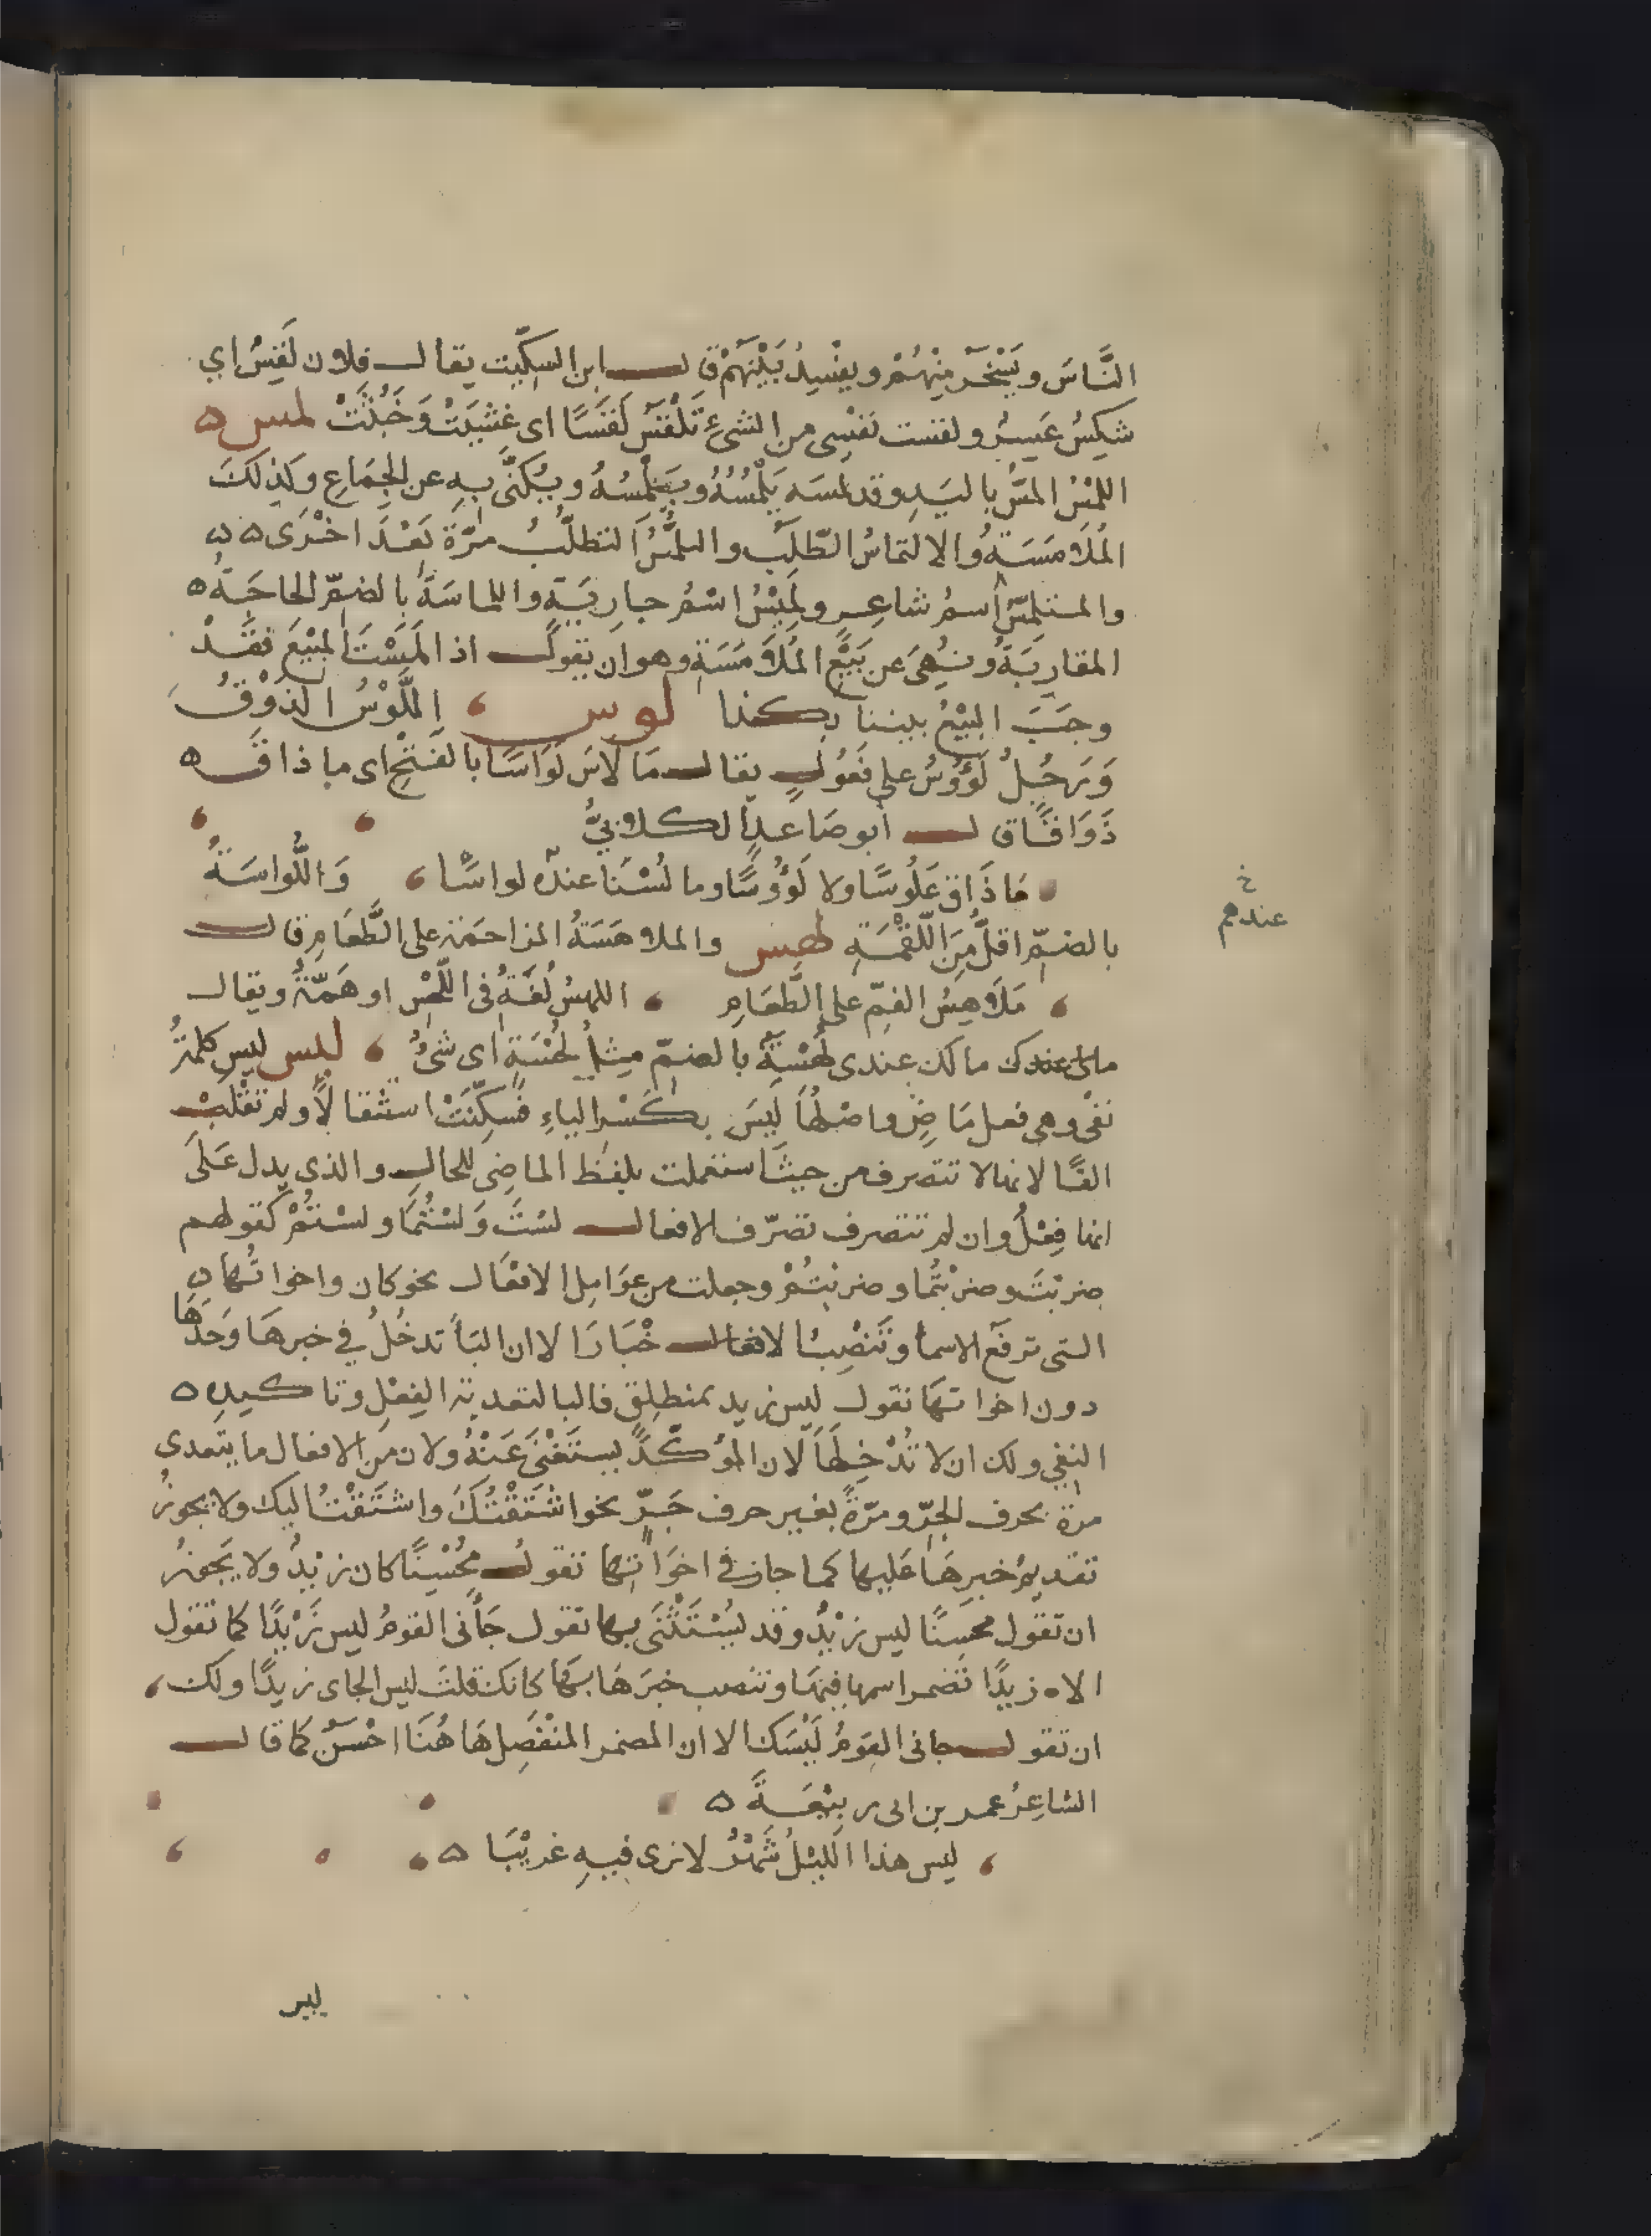 النَّاسَ ويَسْخَر مِنْهُمْ ويفْسِدُ بَيْنَهُمْ قال ابن السِكّيت يقال فلان لَقِسٌ اي
شَكِسٌ عَسِرٌ ولقست نَفْسِي من الشيءِ تَلْقَسُ لَقَسًا اى غَثَيَتْ وَخَبُثَتْ لمس ۵
اللمْسُ المسُّ باليَدِ وقد لمسَه يَلْمُسُهُ ويَلْمِسُهُ ويُكَنَّى بهِ عن الجِمَاعِ وكَذلكَ
المُلامَسَةُ والالتماسُ الطّلَبُ والتلمُّسُ التطلُّبُ مرّةً بَعْدَ اخْرَى ۵۵
والمتلمّسُ اسمُ شاعِرٍ ولَمِيْسُ اسْمُ جاريَةٍ واللماسَةُ بالضمّ الحاجَةُ ۵
المقاربَةُ ونُهِىَ عن بَيْعِ المُلَامَسَةِ وهو ان يقول اذا لَمَسْتَ المبْيعَ فقَدْ
وجَبَ البيْعُ بيننا بكذا لوس ، اللَّوْسُ الذوْقُ
وَرَجُلٌ لَؤُوْسٌ على فَعُولٍ يقال مَا لَاسَ لَوَاسًا بالفتْحِ اى ما ذاقَ ۵
ذَوَاقًا قال أبو صَاعدٍ الكلابيُّ
مَا ذَاقَ عَلُوسًا ولا لَؤُوسًا وما لُسْنَا عندَه لواسًا ، وَاللُّواسَةُ
خ
عندهم
بالضمّ اقلُّ مِنَ اللّقْمَةِ لهس والملاهَسَةُ المزاحَمَة على الطَّعَامِ قال
، مَلَاهِيسُ الفمِّ على الطَّعَامِ ، اللهسُ لُغَةٌ فى اللّحْسِ او هَمّةٌ ويقال
مالى عندك مالك عندى لُهْسَةٌ بالضمّ مثلُ لُحْسَةٍ اى شَىْءٌ ، ليس ليس كلمةُ
نفى وهى فعل مَاضٍ واصْلُهَا لَيِسَ بكَسْرِ الياءِ فَسُكِّنَتْ استثقالًا ولم تقْلَبْ
الفًا لانها لا تتصرف من حيث استعملت بلفظ الماضِى للحال والذى يدل عَلَى
انها فِعْلٌ وان لم تتصرف تصرّف الافعال لسْتَ وَلسْتُمَا ولسْتُمْ كقولهم
ضربْتَ وضربْتُما وضربْتُمْ وجعلت من عوَامِل الافعَال نحو كان واخواتُها ۵
التى ترفَع الاسماء وتَنْصِبُ الافعال خْبَارَا لا ان البَاء تدخُلُ في خبرهَا وَحَدَهَا
دون اخواتهَا تقول ليس زيد بمنطلِقٍ فالبا لتعدية الفِعْلِ وتاكيدِ ۵
النفي ولك ان لا تُدْخِلَهَا لان المؤكّدَ يستَغْنَى عَنْهُ ولان مِنَ الافعال ما يتعدى
مرة بحرف الجرّ ومرّةً بغير حرف جَرّ نحو اشْتَقْتُكَ واشتَقْتُ اليك ولا يجوزُ
تقديمُ خبرِهَا عَليها كما جاز فى اخوَاتها تقول مُحْسِنًا كان زيْدٌ ولا يَجوزُ
ان تقول محسِنًا ليس زيْدٌ وقد يُسْتَثْنَى بها تقول جَأنى القومُ ليس زَيْدًا كما تقول
الاه زيدًا تُضمر اسمها فيْهَا وتنصب خبرَهَا بهَا كانك قلت ليس الجاى زيدًا ولك ،
ان تقول جانى القومُ لَيْسَكَ الا ان المضمر المنْفَصِل هَا هُنَا احْسَنُ كما قال
الشاعِرُ عمر بن ابى ربيْعَةَ ۵
، ليس هذا الليْلُ شَهْرٌ لا نرى فيهِ غريْبَا ۵
ليس